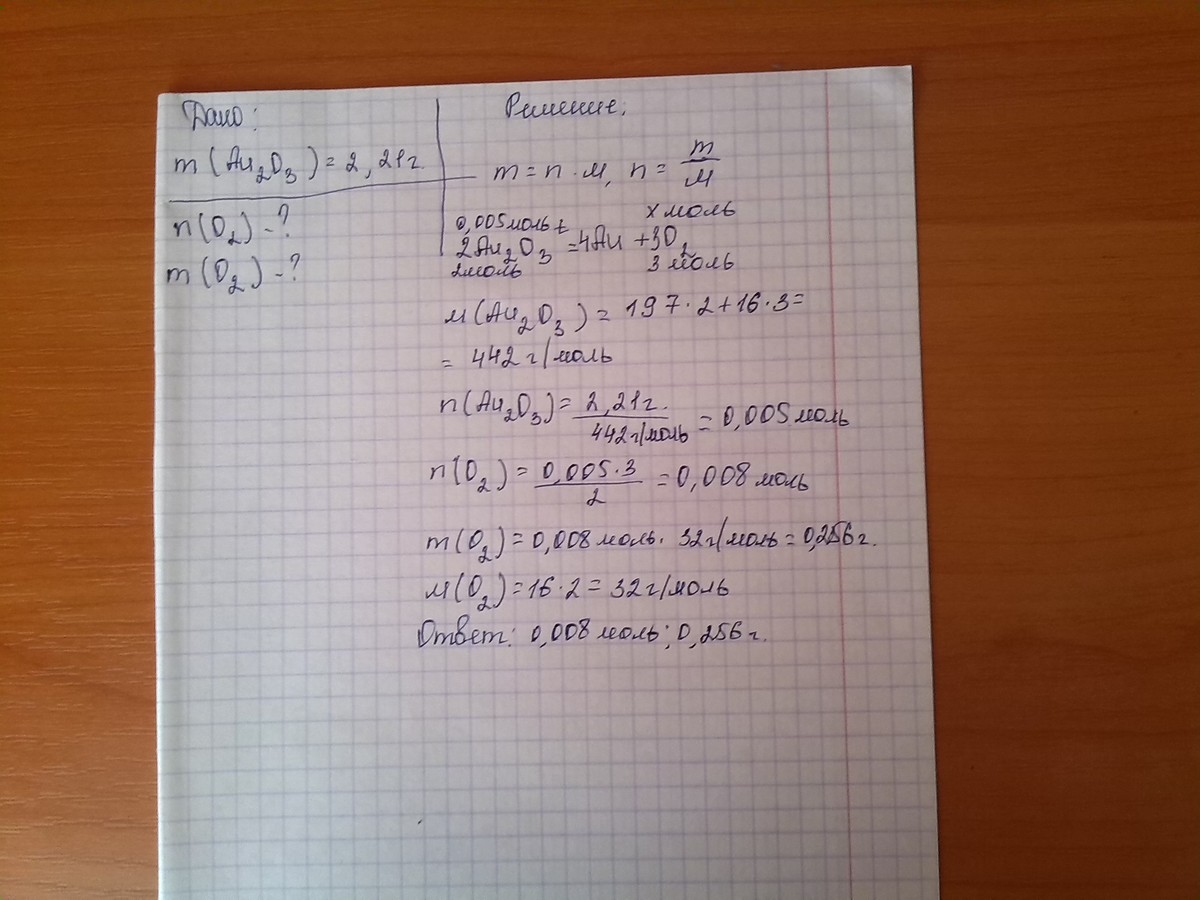 Дано:
m(Au₂O₃) = 2,21г.
n(O₂) - ?
m(O₂) - ?
Решение:
m = n · M, n = m/M
0,005моль t x моль
2Au₂O₃ = 4Au + 3O₂
2моль 3 моль
M(Au₂O₃) = 197·2+16·3=
= 442 г/моль
n(Au₂O₃) = 2,21г. / 442г/моль = 0,005 моль
n(O₂) = 0,005·3 / 2 = 0,008 моль
m(O₂) = 0,008 моль · 32г/моль = 0,256 г.
M(O₂) = 16·2 = 32 г/моль
Ответ: 0,008 моль; 0,256 г.